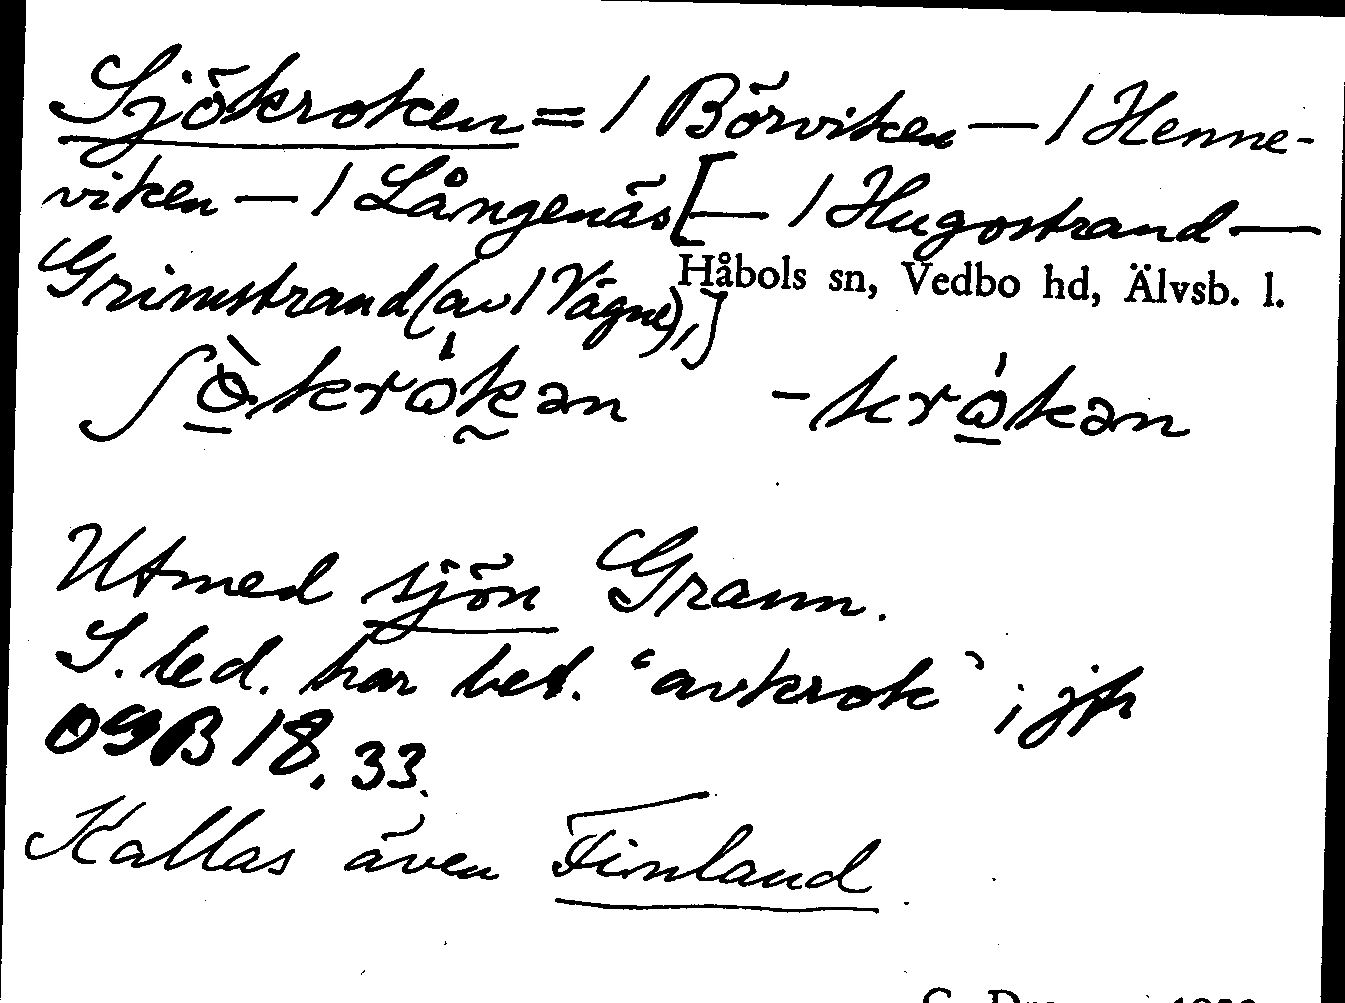 Sjökroken = / Börviken — / Henne-
viken — / Långenäs [— / Hugostrand —
Grimstrand (av / Vägne),]
Håbols sn, Vedbo hd, Älvsb. l.
ʃö̀krω̍kən -krω̍kən
Utmed sjön Grann.
S. led. har bet. ‘avkrok’; jfr
OGB 18, 33.
Kallas även Finland